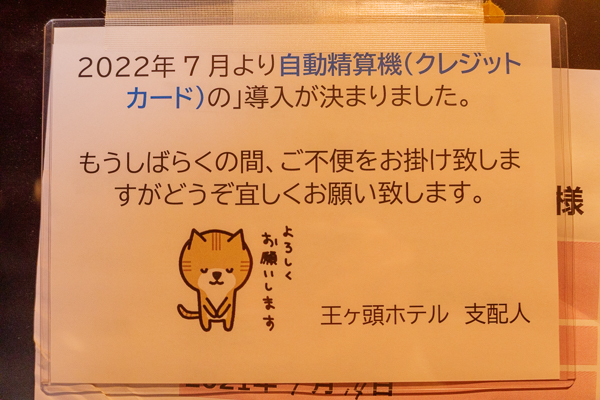 2022年7月より自動精算機(クレジット
カード)の」導入が決まりました。
もうしばらくの間、ご不便をお掛け致しま
すがどうぞ宜しくお願い致します。
よろしく
お願いします
王ヶ頭ホテル 支配人
様
2021年7月14日